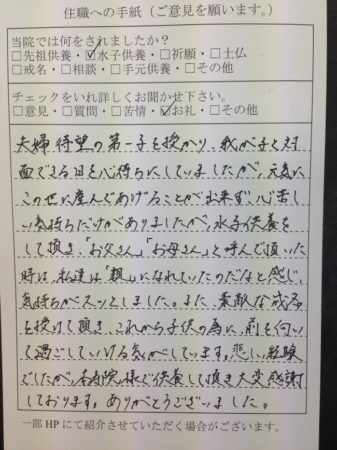 住職への手紙（ご意見を願います。）
当院では何をされましたか？
□先祖供養・☑水子供養・□祈願・□土仏
□戒名・□相談・□手元供養・□その他
チェックをいれ詳しくお聞かせ下さい。
□意見・□質問・□苦情・☑お礼・□その他
夫婦待望の第一子を授かり、我が子と対
面できる日を心待ちにしていましたが、元気に
この世に産んであげることが出来ず、心苦し
い気持ちだけがありましたが、水子供養を
して頂き、「お父さん」「お母さん」と呼んで頂いた
時は、私達は「親」になれていたのだなと感じ、
気持ちがスッとしました。また、素敵な戒名
を授けて頂き、これから子供の為に、前を向い
て過ごしていける気がしています。悲しい経験
でしたが、本寿院様で供養して頂き大変感謝
しております。ありがとうございました。
一部HPにて紹介させていただく場合がございます。